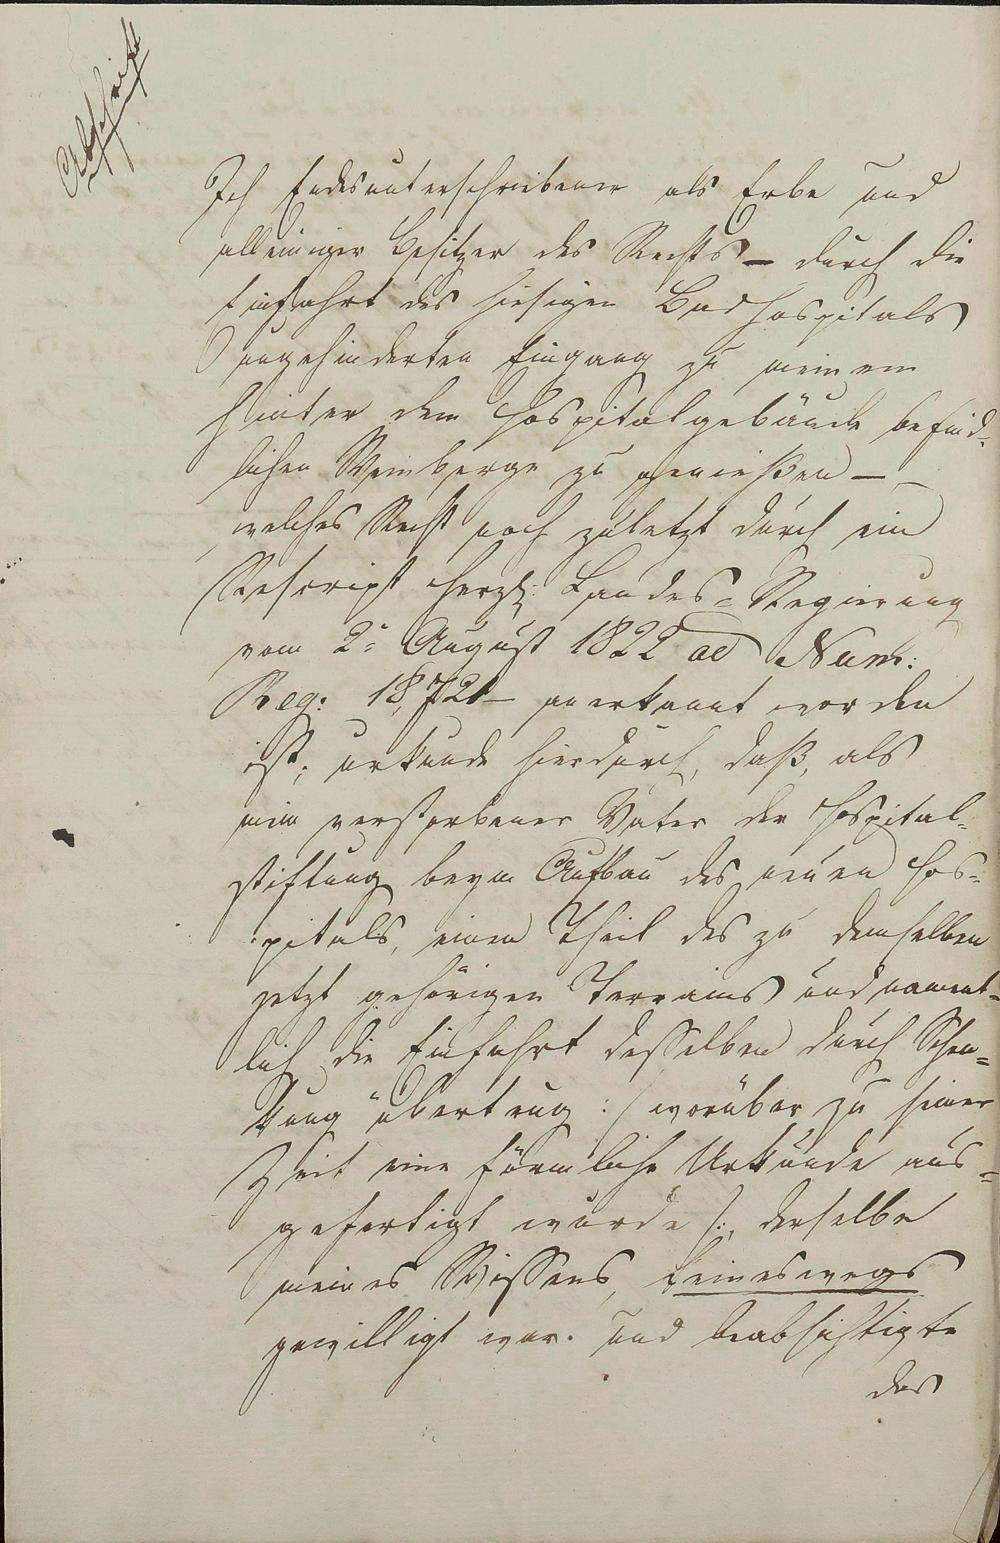 Abschrift
Ich Endesunterschriebener als Erbe und
alleiniger Besitzer des Rechts – durch die
Einfahrt des hiesigen Badhospitals
ungehinderten Eingang zu meinem
hinter dem Hospitalgebäude befind-
lichen Weinberge zu genießen –
welches Recht noch zuletzt durch ein
Rescript Herzgl: Landes-Regierung
vom 2n August 1822 ad Num:
Reg: 18,721 – anerkannt worden
ist; urkunde hierdurch, daß, als
mein verstorbener Vater der Hospital-
stiftung beym Aufbau des neuen Hos-
pitals, einen Theil des zu demselben
jetzt gehörigen Terrains und nament-
lich die Einfahrt desselben durch Schen-
kung übertrug :/ worüber zu seiner
Zeit eine förmliche Urkunde aus-
gefertigt wurde /:, derselbe
meines Wissens, keineswegs
gewilligt war und beabsichtigte
das